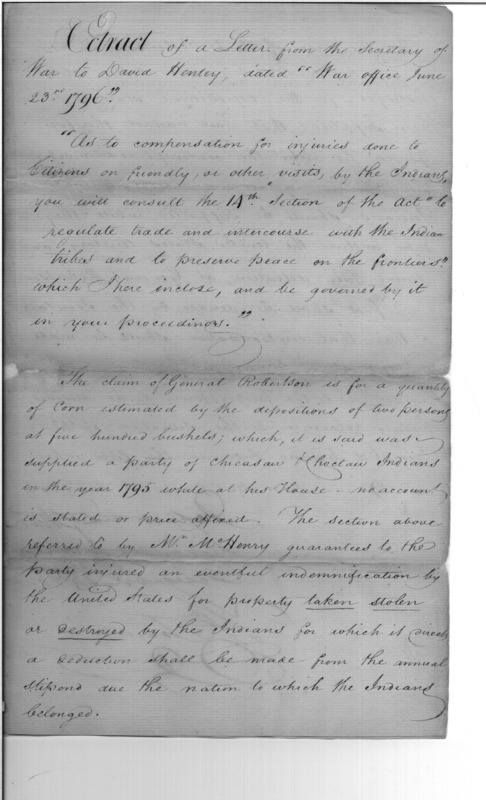 Extract of a Letter from the Secretary of
War to David Henley, dated "War office June
23rd 1796"
"As to compensation for injuries done to
Citizens on friendly, or other visits, by the Indians,
you will consult the 14th Section of the Act "to
regulate trade and intercourse with the Indian
tribes and to preserve peace on the frontiers"
which I here inclose, and be governed by it
in your proceedings."
The claim of General Robertson is for a quantity
of Corn estimated by the depositions of two persons
at five hundred bushels; which, it is said was
supplied a party of Chicasaw & Choctaw Indians
in the year 1795 while at his House - no account
is stated or price affixed. The section above
referred to by Mr. McHenry guarantees to the
party injured an eventful indemnification by
the United States for property taken stolen
or destroyed by the Indians for which it directs
a deduction shall be made from the annual
stipend due the nation to which the Indians
belonged.